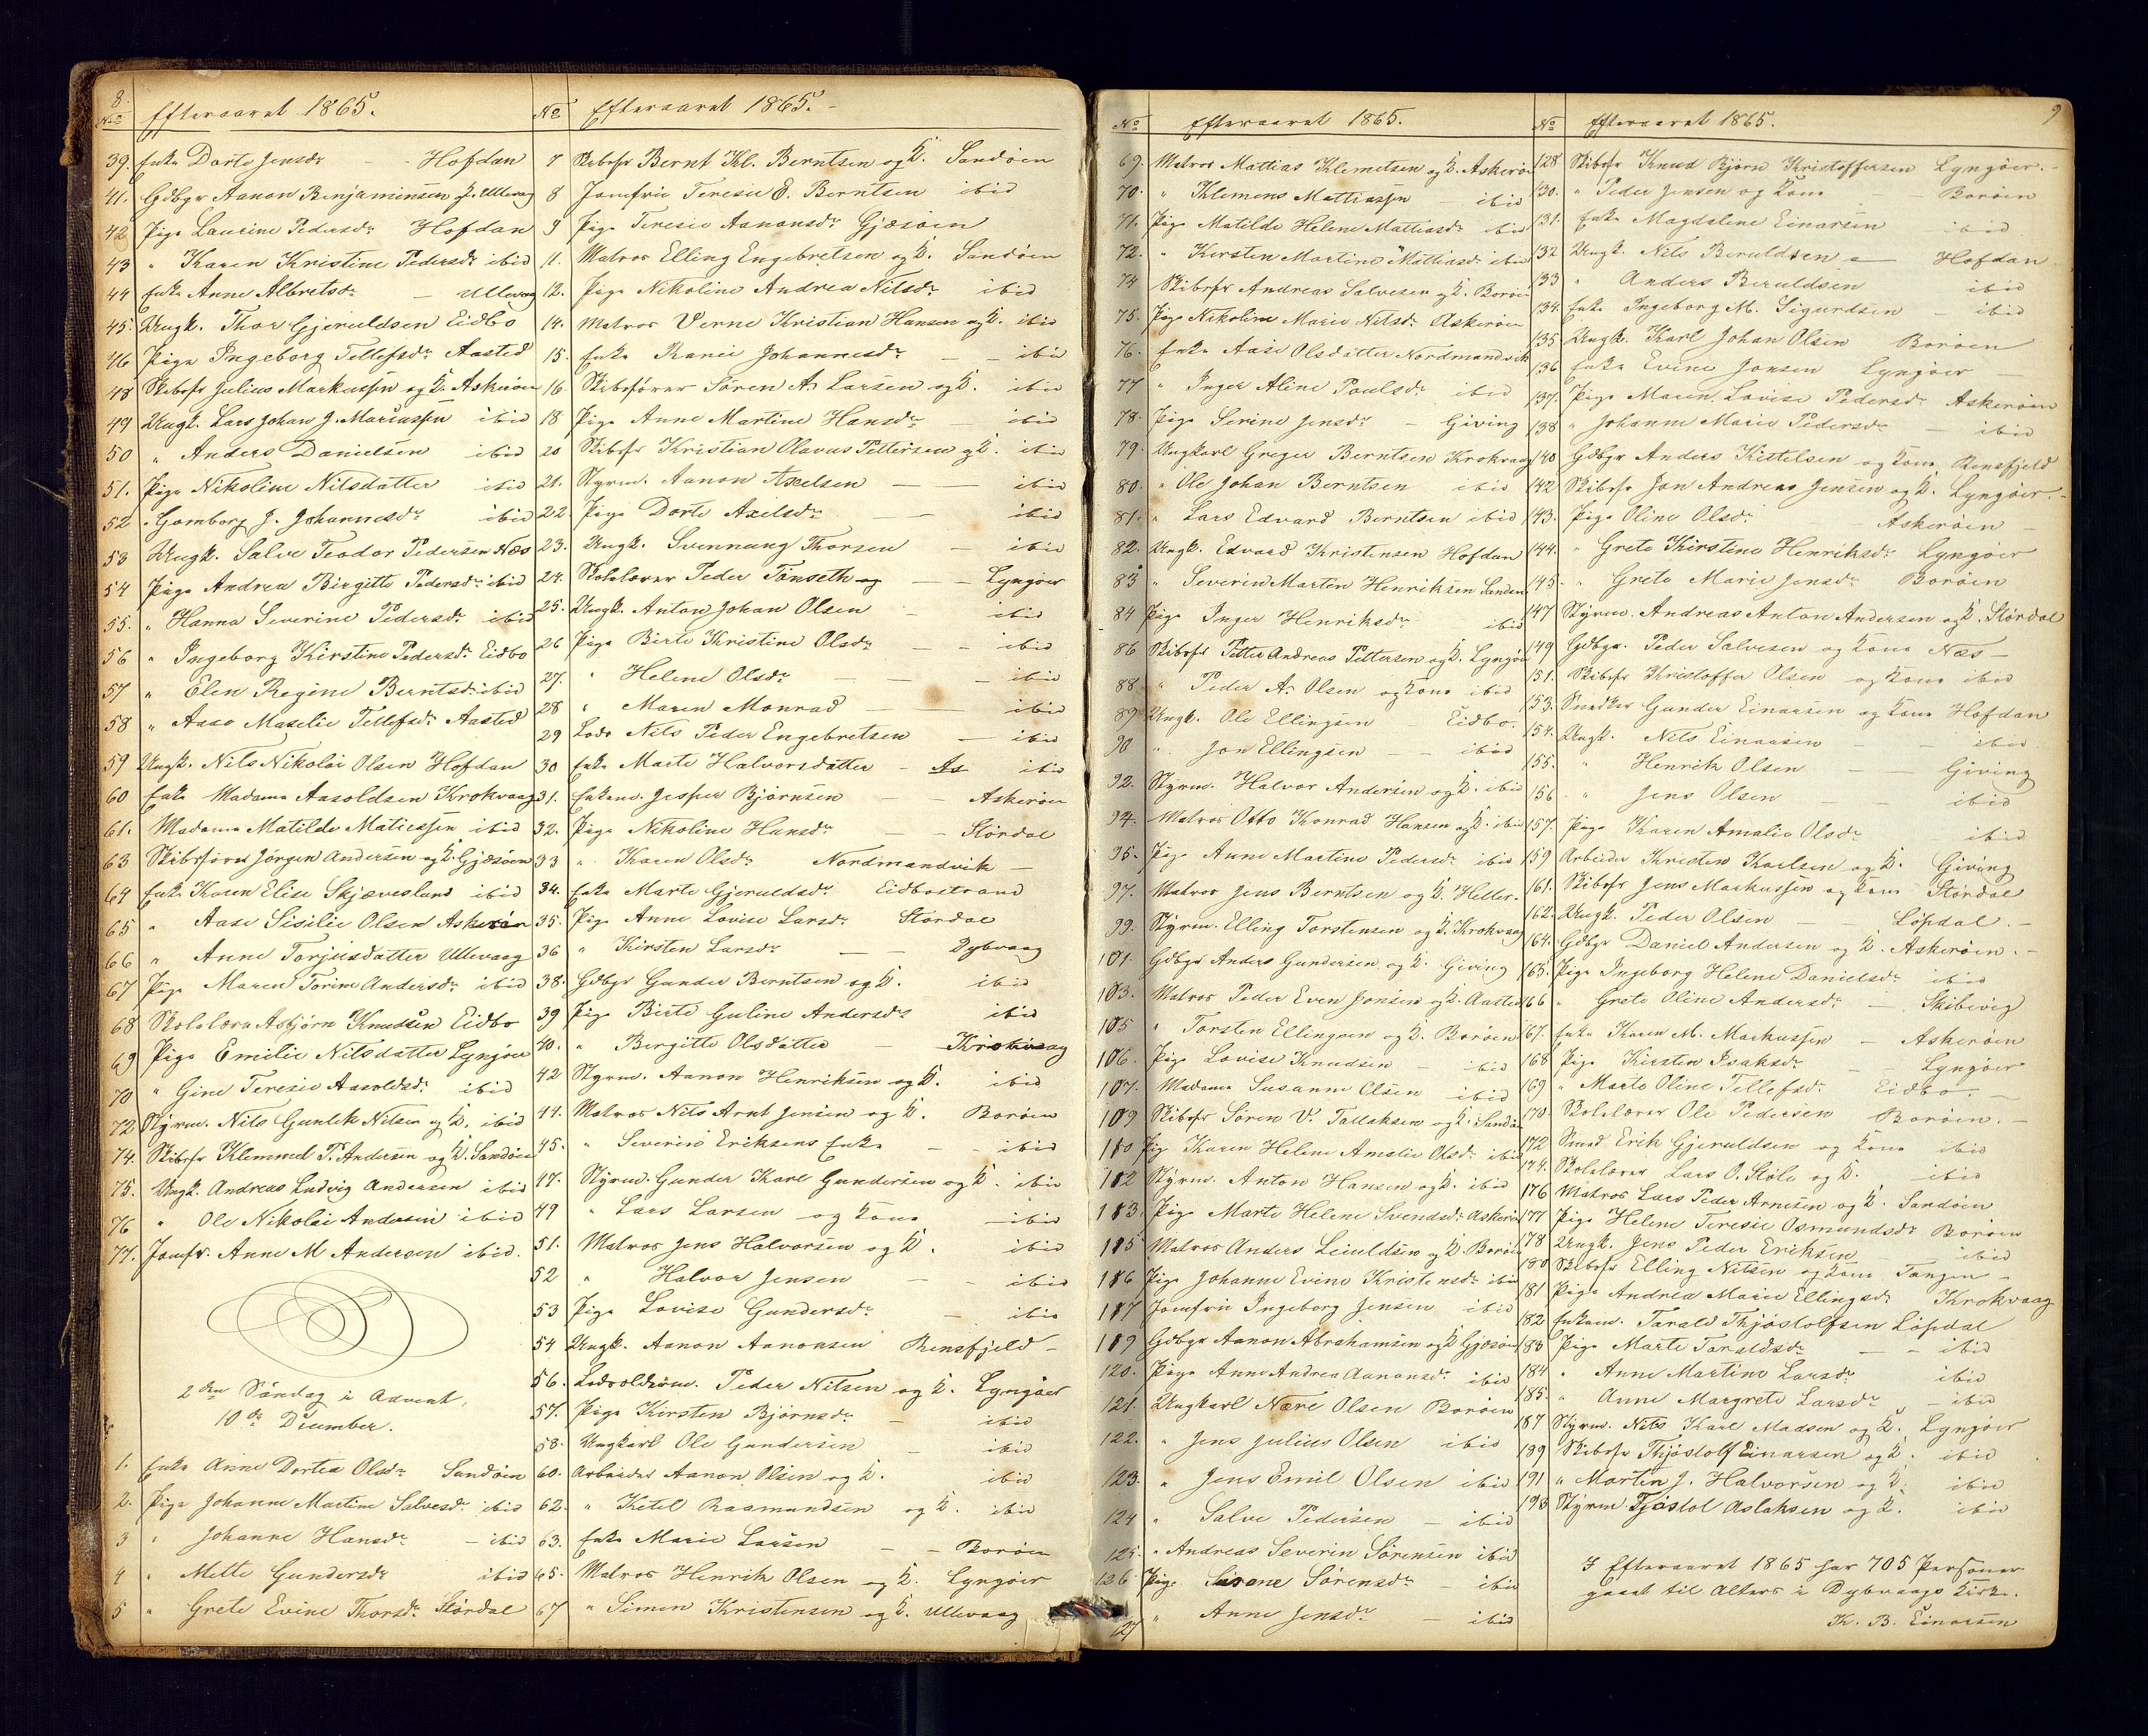 8.
No Efteraaret 1865.
39. Enke Dorte Jensdr - - Hofdan
41. Gdbgr Aanon Benjaminsen og K. Ullevaag
42 Pige Laurine Pedersdr Hofdan
43 " Karen Kristine Pedersdr ibid
44 Enke Anne Albretsdr - Ullevaag
45. Ungk. Thor Gjeruldsen Eidbo
46 Pige Ingeborg Tellefsdr Aasted
48 Skibsfr Julius Markussen og K. Askerøen
49 Ungk. Lars Johan J. Mariussen ibid
50 " Anders Danielsen ibid
51. Pige Nikoline Nilsdatter ibid
52 " Gomborg J. Johannesdr ibid
53 Ungk. Salve Teodor Pedersen Næs
54 Pige Andrea Birgitte Pedersdr ibid
55. " Hanna Severine Pedersdr ibid
56 " Ingeborg Kirstine Pedersdr Eidbo
57 " Elen Regine Berntsdr ibid
58 " Aase Maselie Tellefsdr Aasted
59 Ungk. Nils Nikolai Olsen Hofdan
60 Enke Madame Aasoldsen Krokvaag
61. Madame Matilde Matiessen ibid
63 Skibsfører Jörgen Andersen og K. Gjæsøen
64 Enke Karen Elise Skjævesland ibid
65 " Aase Sisilie Olsen Askerøen
66 " Anne Torjusdatter Ullevaag
67 Pige Maren Torine Andersdr ibid
68 Skolelærer Asbjörn Knudsen Eidbo
69 Pige Emilie Nilsdatter Lyngöer
70 " Gine Teresie Aasoldsdr ibid
72 Styrm. Nils Gunlek Nilsen og K. ibid
74. Skibsfr Klemmed P. Andersen og K. Sandøen
75. Ungk. Andreas Ludvig Andersen ibid
76 " Ole Nikolai Andersen ibid
77. Jomfr. Anne M Andersen ibid.
2den Söndag i Advent,
10de December.
1. Enke Anne Dortea Olsdr Sandøen
2. Pige Johanne Martine Salvesdr ibid
3 " Johanne Hansdr - ibid
4 " Mette Gundersdr ibid
5 " Grete Evine Thorsdr Stördal
No Efteraaret 1865. -
7 Skibsfr Bernt Kl. Berntsen og K. Sandöen
8 Jomfrue Teresie E. Berntsen ibid
9 Pige Teresie Aanonsdr Gjæsöen
11. Matros Elling Engebretsen og K. Sandöen
12. Pige Nikoline Andrea Nilsdr ibid
14. Matros Verne Kristian Hansen og K. ibid
15. Enke Ranei Johannesdr - - ibid
16 Skibsförer Sören A. Larsen og K. ibid
18 Pige Anne Martine Hansdr - ibid
20 Skibsfr Kristian Olavus Pettersen og K. ibid
21. Styrm. Aanon Axelsen - - ibid
22. Pige Dorte Axelsdr - - ibid
23. Ungk. Svennung Thorsen - ibid
24. Skolelærer Peder Tönseth og - - Lyngöer
25. Ungk. Anton Johan Olsen - ibid
26 Pige Birte Kristine Olsdr - - ibid
27. " Helene Olsdr - - - ibid
28 " Maren Monrad - - ibid
29 Lods Nils Peder Engebretsen - ibid
30 Enke Marte Halvorsdatter - As ibid
31. Enkem. Jesper Bjørnsen - - Askeröen
32. Pige Nikoline Hansdr - - Stördal
33 " Karen Olsdr Nordmandvik -
34. Enke Marte Gjeruldsdr Eidbostrand
35. Pige Anne Lovise Larsdr Stördal
36 " Kirsten Larsdr - - Dybvaag
38. Gdbgr Gunder Berntsen og K. ibid
39 Pige Birte Guline Andersdr ibid
40. " Birgitte Olsdatter - Krokvaag
42 Styrm. Aanon Henriksen og K. ibid
44. Matros Nils Arnt Jensen og K. Boröen
45. " Severins Eriksens Enke - - ibid
47. Styrm. Gunder Karl Gundersen og K. ibid
49 " Lars Larsen og Kone - ibid
51. Matros Jens Halvorsen og K. ibid
52 " Halvor Jensen - - ibid
53 Pige Lovise Gundersdr - ibid
54 Ungk. Aanon Aanonsen Rensfjeld -
56. Lodsoldrm. Peder Nilsen og K. Lyngöer
57. Pige Kirsten Bjørnsdr - ibid
58. Ungkarl Ole Gundersen - ibid
60. Arbeider Aanon Olsen og K. ibid
62. " Ketel Raamundsen og K. ibid
63. Enke Marie Larsen - - Boröen
65. Matros Henrik Olsen og K. Lyngöer
67 " Simon Kristensen og K. Ullevaag
No Efteraaret 1865.
69. Matros Mattias Klemetsen og K. Askeröen
70. " Klemens Mattiassen - ibid
71. Pige Matilde Helene Mattiasdr ibid
72. " Kirsten Martine Mattiasdr ibid
74 Skibsfr Andreas Salvesen og K. Boröen
75. Pige Nikoline Marie Nilsdr Askeröen
76. Enke Aase Olsdatter Nordmandvik
77 " Inger Aline Poulsdr ibid
78. Pige Serine Jensdr - Giving
79. Ungkarl Greger Berntsen Krokvaag
80. " Ole Johan Berntsen ibid
81. " Lars Edvard Berntsen ibid
82. Ungk. Edvard Kristensen Hofdan
83 " Severin Marten Henriksen Sandøen
84 Pige Inger Henriksdr ibid
86 Skibsfr Petter Andreas Pettersen og K. Lyngöer
88 " Peder A. Olsen og Kone ibid
89 Ungk. Ole Ellingsen - Eidbo.
90 " Jon Ellingsen - - ibid
92. Styrm. Halvor Andersen og K. ibid
94. Matros Otto Konrad Hansen og K. ibid
95. Pige Anne Martine Pedersdr ibid
97. Matros Jens Berntsen og K. Heller.
99. Styrm. Elling Torstensen og K. Krokvaag
101. Gdbgr Anders Gundersen og K. Giving
103. Matros Peder Even Jonsen og K. Aasted
105 " Torsten Ellingsen og K. Boröen
106. Pige Lovise Knudsen - ibid
107. Madame Susanne Olsen ibid
109 Skibsfr Sören V. Tallaksen og K. Sandøen
110 Pige Karen Helene Amalie Olsdr ibid
112 Styrm. Anton Hansen og K. ibid
113. Pige Marte Helene Svendsdr Askeröen
115 Matros Anders Leiuldsen og K. Boröen
116 Pige Johanne Evine Kristensdr ibid
117 Jomfrue Ingeborg Jensen ibid
119 Gdbgr Aanon Abrahamsen og K. Gjæsöen
120. Pige Anne Andrea Aanonsdr ibid
121. Ungkarl Nære Olsen Boröen
122. " Jens Julius Olsen ibid
123. " Jens Emil Olsen ibid
124 " Salve Pedersen - ibid
125. " Andreas Severin Sörensen ibid
126 Pige Sörensdr - ibid
127 " Anne Jensdr - ibid
9
No Efteraaret 1865.
128 Skibsfr Knud Bjørn Kristoffersen Lyngöer.
130. " Peder Jensen og Kone - Boröen
131. Enke Magdalene Einarsen ibid
132 Ungk. Nils Beruldsen - Hofdan
133 " Anders Beruldsen ibid
134. Enke Ingeborg M. Sigurdsen - ibid
135 Ungk. Karl Johan Olsen Boröen
136 Enke Evine Jonsen Lyngöer -
137. Pige Maren Lovise Pedersdr Askeröen
138 " Johanne Marie Pedersdr - ibid
140 Gdbgr Anders Kittelsen og Kone Rensfjeld
142 Skibsfr Jon Andreas Jensen og K. Lyngöer.
143. Pige Oline Olsdr Askeröen -
144. " Grete Kirstine Henriksdr Lyngöer
145. " Grete Marie Jensdr Boröen
147 Styrm. Andreas Anton Andersen og K. Stördal
149 Gdbgr. Peder Salvesen og Kone Næs -
151. Skibsfr Kristoffer Olsen og Kone ibid
153. Snedker Gunder Einarsen og Kone Hofdan
154. Ungk. Nils Einarsen - - ibid
155. " Henrik Olsen - - Giving
156 " Jens Olsen - - ibid
157. Pige Karen Amalie Olsdr - ibid
159 Arbeider Kristen Karlsen og K. Giving
161. Skibsfr Jens Markussen og Kone Stördal
162. Ungk. Peder Olsen - Löpdal. -
164. Gdbgr Daniel Andersen og K. Askeröen. -
165. Pige Ingeborg Helene Danielsdr ibid
166 " Grete Oline Andersdr - Skibevig
167. Enke Karen M. Markussen - Askeröen
168 Pige Kirsten Isaksdr - Lyngöer
169 " Marte Oline Tellefsdr Eidbo.
170 Skolelærer Ole Pedersen Boröen. -
172 Smed Erik Gjeruldsen og Kone ibid
174. Skolelærer Lars O. Stöle og K. ibid
176 Matros Lars Peder Arnesen og K. Sandöen
177 Pige Helene Teresie Osmundsdr Boröen
178 Ungk. Jens Peder Eriksen - ibid
180 Skibsfr Elling Nilsen og Kone Tangen -
181 Pige Andrea Marie Ellingsdr Krokvaag
182 Enkem. Tarald Thjöstolfsen Löpdal
183 Pige Marte Taraldsdr - - ibid
184 " Anne Martine Larsdr ibid
185. " Anne Margrete Larsdr - ibid
187 Styrm. Nils Karl Madsen og K. Lyngöer
189 Skibsfr Thjöstolf Einarsen og K. ibid
191 " Martin J. Halvorsen og K. ibid
193 Styrm Tjöstol Aslaksen og K. ibid
I Efteraaret 1865 har 705 Personer
gaaet til Alters i Dybvaags Kirke.
K. B. Einarsen